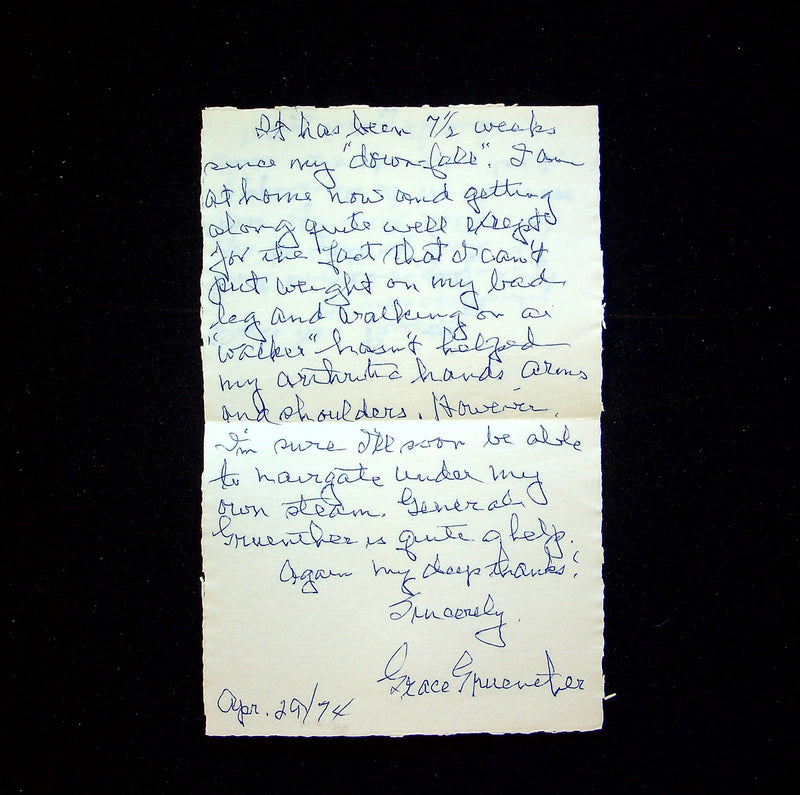 It has been 7½ weeks
since my "down-fall". I am
at home now and getting
along quite well except
for the fact that I can't
put weight on my bad
leg and walking on a
"walker" hasn't helped
my arthritic hands arms
and shoulders. However,
I'm sure I'll soon be able
to navigate under my
own steam. General
Gruenther is quite a help.
Again my deep thanks!
Sincerely,
Grace Gruenther
Apr. 29/74